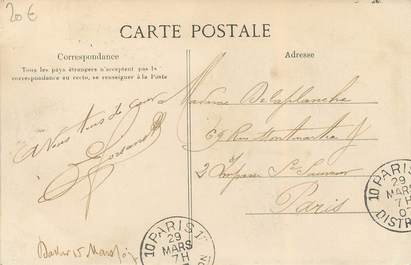 20 €
CARTE POSTALE
Correspondance
Tous les pays étrangers n'acceptent pas la
correspondance au recto, se renseigner à la Poste
Adresse
A Vous tous de cœur
Madame Delaplanche
69 Rue Montmartre
2 Impasse St Sauveur
Paris
Dakar 15 Mars
PARIS
10
29
MARS
7H
10 PARIS
29
MARS
7H
DISTR